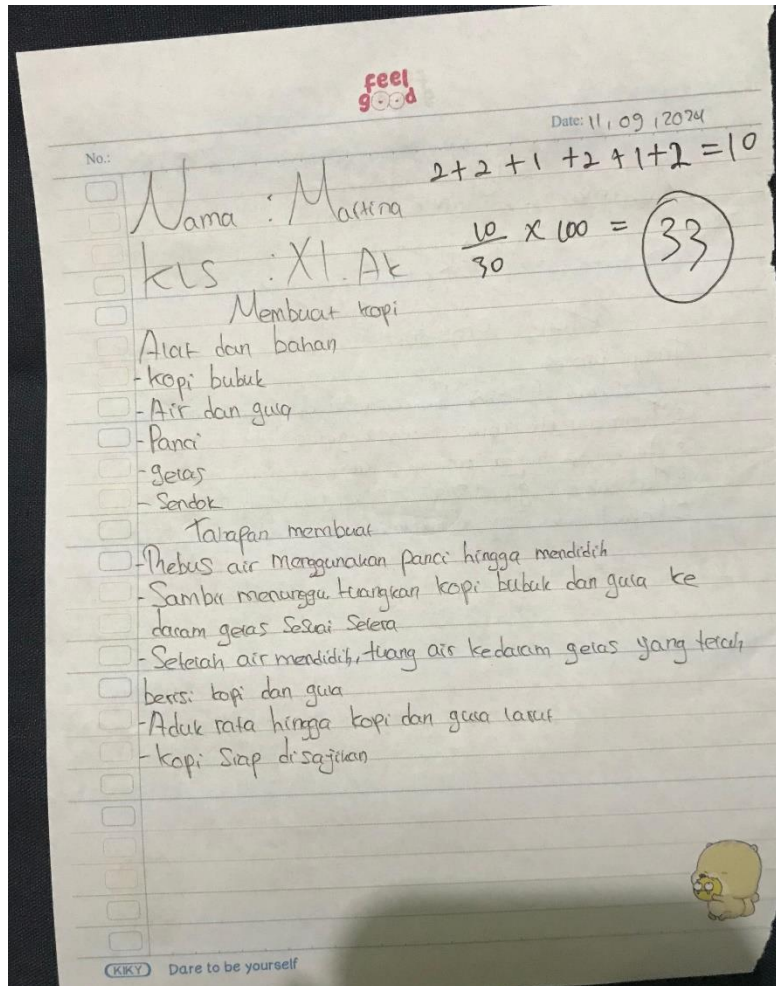 feel
good
Date: 11, 09, 2024
No.:
2+2+1+2+1+2=10
Nama : Martina
10/30 x 100 = 33
Kls : XI.Ak
Membuat kopi
Alat dan bahan
- kopi bubuk
- Air dan gula
- Panci
- gelas
- Sendok
Tahapan membuat
- Rebus air menggunakan panci hingga mendidih
- Sambil menunggu tuangkan kopi bubuk dan gula ke
dalam gelas Sesuai Selera
- Setelah air mendidih, tuang air kedalam gelas yang telah
berisi kopi dan gula
- Aduk rata hingga kopi dan gula larut
- kopi Siap disajikan
KIKY Dare to be yourself